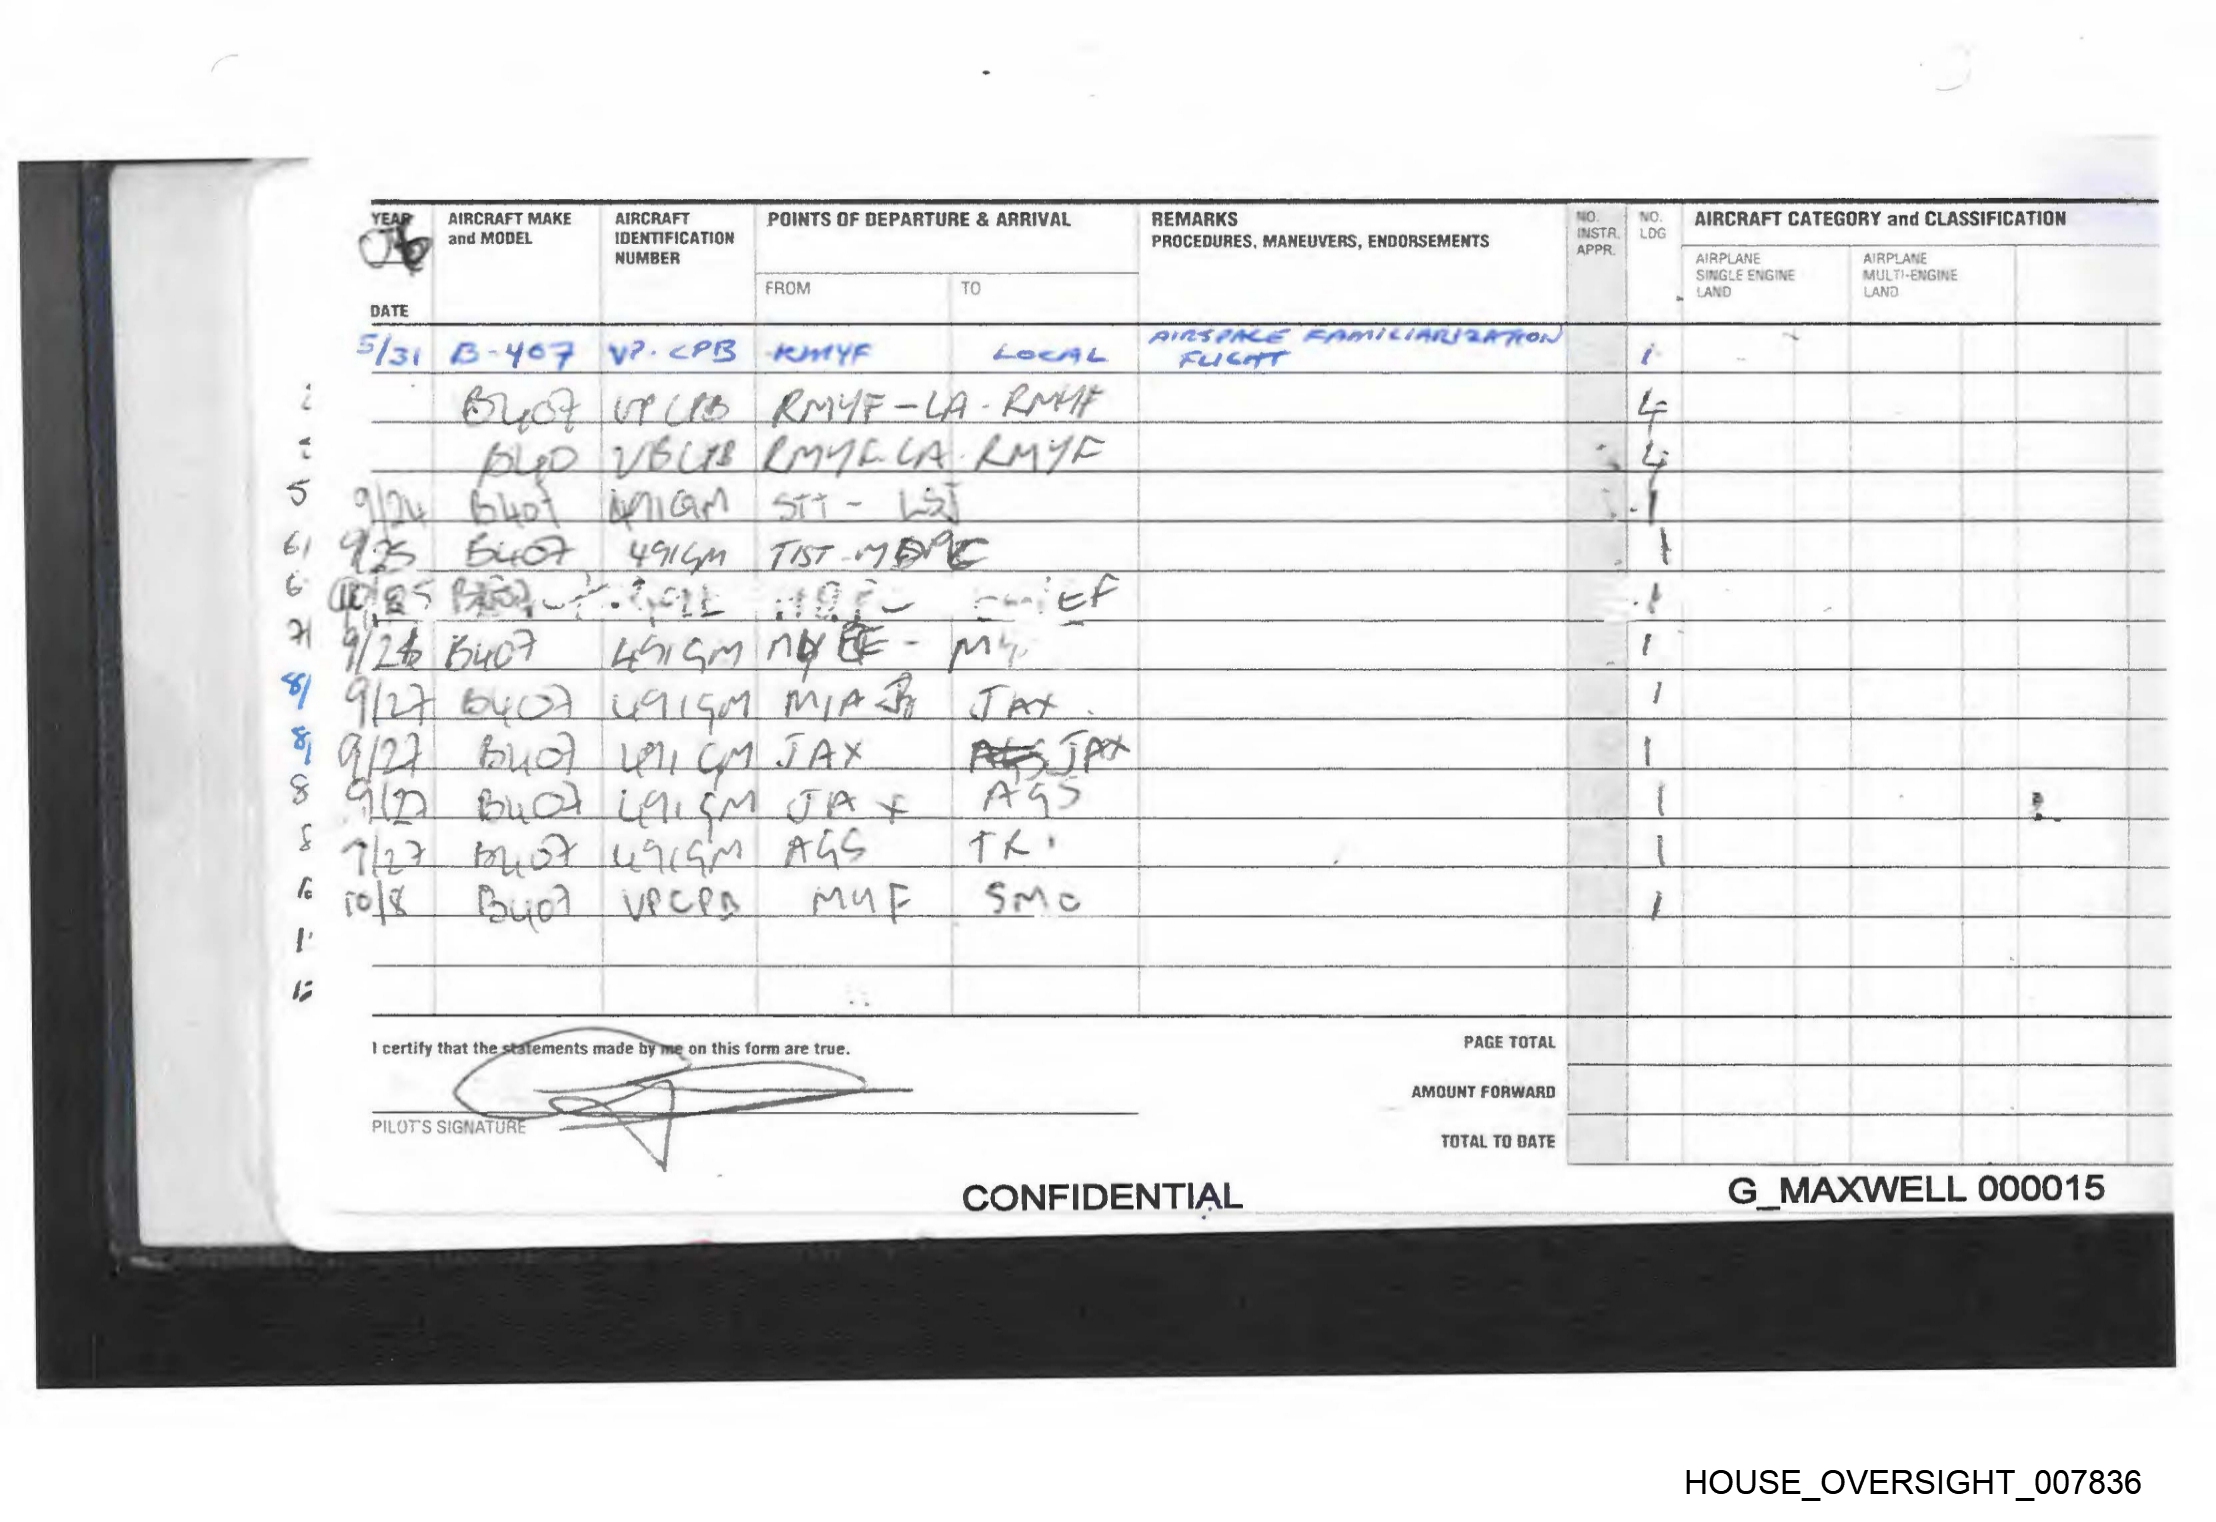 YEAR 06 DATE
AIRCRAFT MAKE and MODEL
AIRCRAFT IDENTIFICATION NUMBER
POINTS OF DEPARTURE & ARRIVAL
FROM TO
REMARKS
PROCEDURES, MANEUVERS, ENDORSEMENTS
NO. INSTR. APPR.
NO. LDG
AIRCRAFT CATEGORY and CLASSIFICATION
AIRPLANE SINGLE ENGINE LAND
AIRPLANE MULTI-ENGINE LAND
5/31 B-407 VP-CPB KMYF LOCAL AIRSPACE FAMILIARIZATION FLIGHT 1
B407 VPCPB RMYF-LA-RMYF 4
B40 RMYF LA-RMYF 4
5 9/24 B407 491GM STT - LSJ 1
6 9/25 B407 491GM TIST- 1
6 EF 1
7 9/26 B407 491GM MYEF - 1
8 9/27 B407 491GM MIA JAX 1
8 9/27 B407 491GM JAX JAX 1
8 9/27 B407 491GM JAX AGS 1
8 9/27 B407 491GM AGS TRI 1
10/8 B407 VPCPB MYF SMO 1
I certify that the statements made by me on this form are true.
PILOT'S SIGNATURE
PAGE TOTAL
AMOUNT FORWARD
TOTAL TO DATE
CONFIDENTIAL
G_MAXWELL 000015
HOUSE_OVERSIGHT_007836